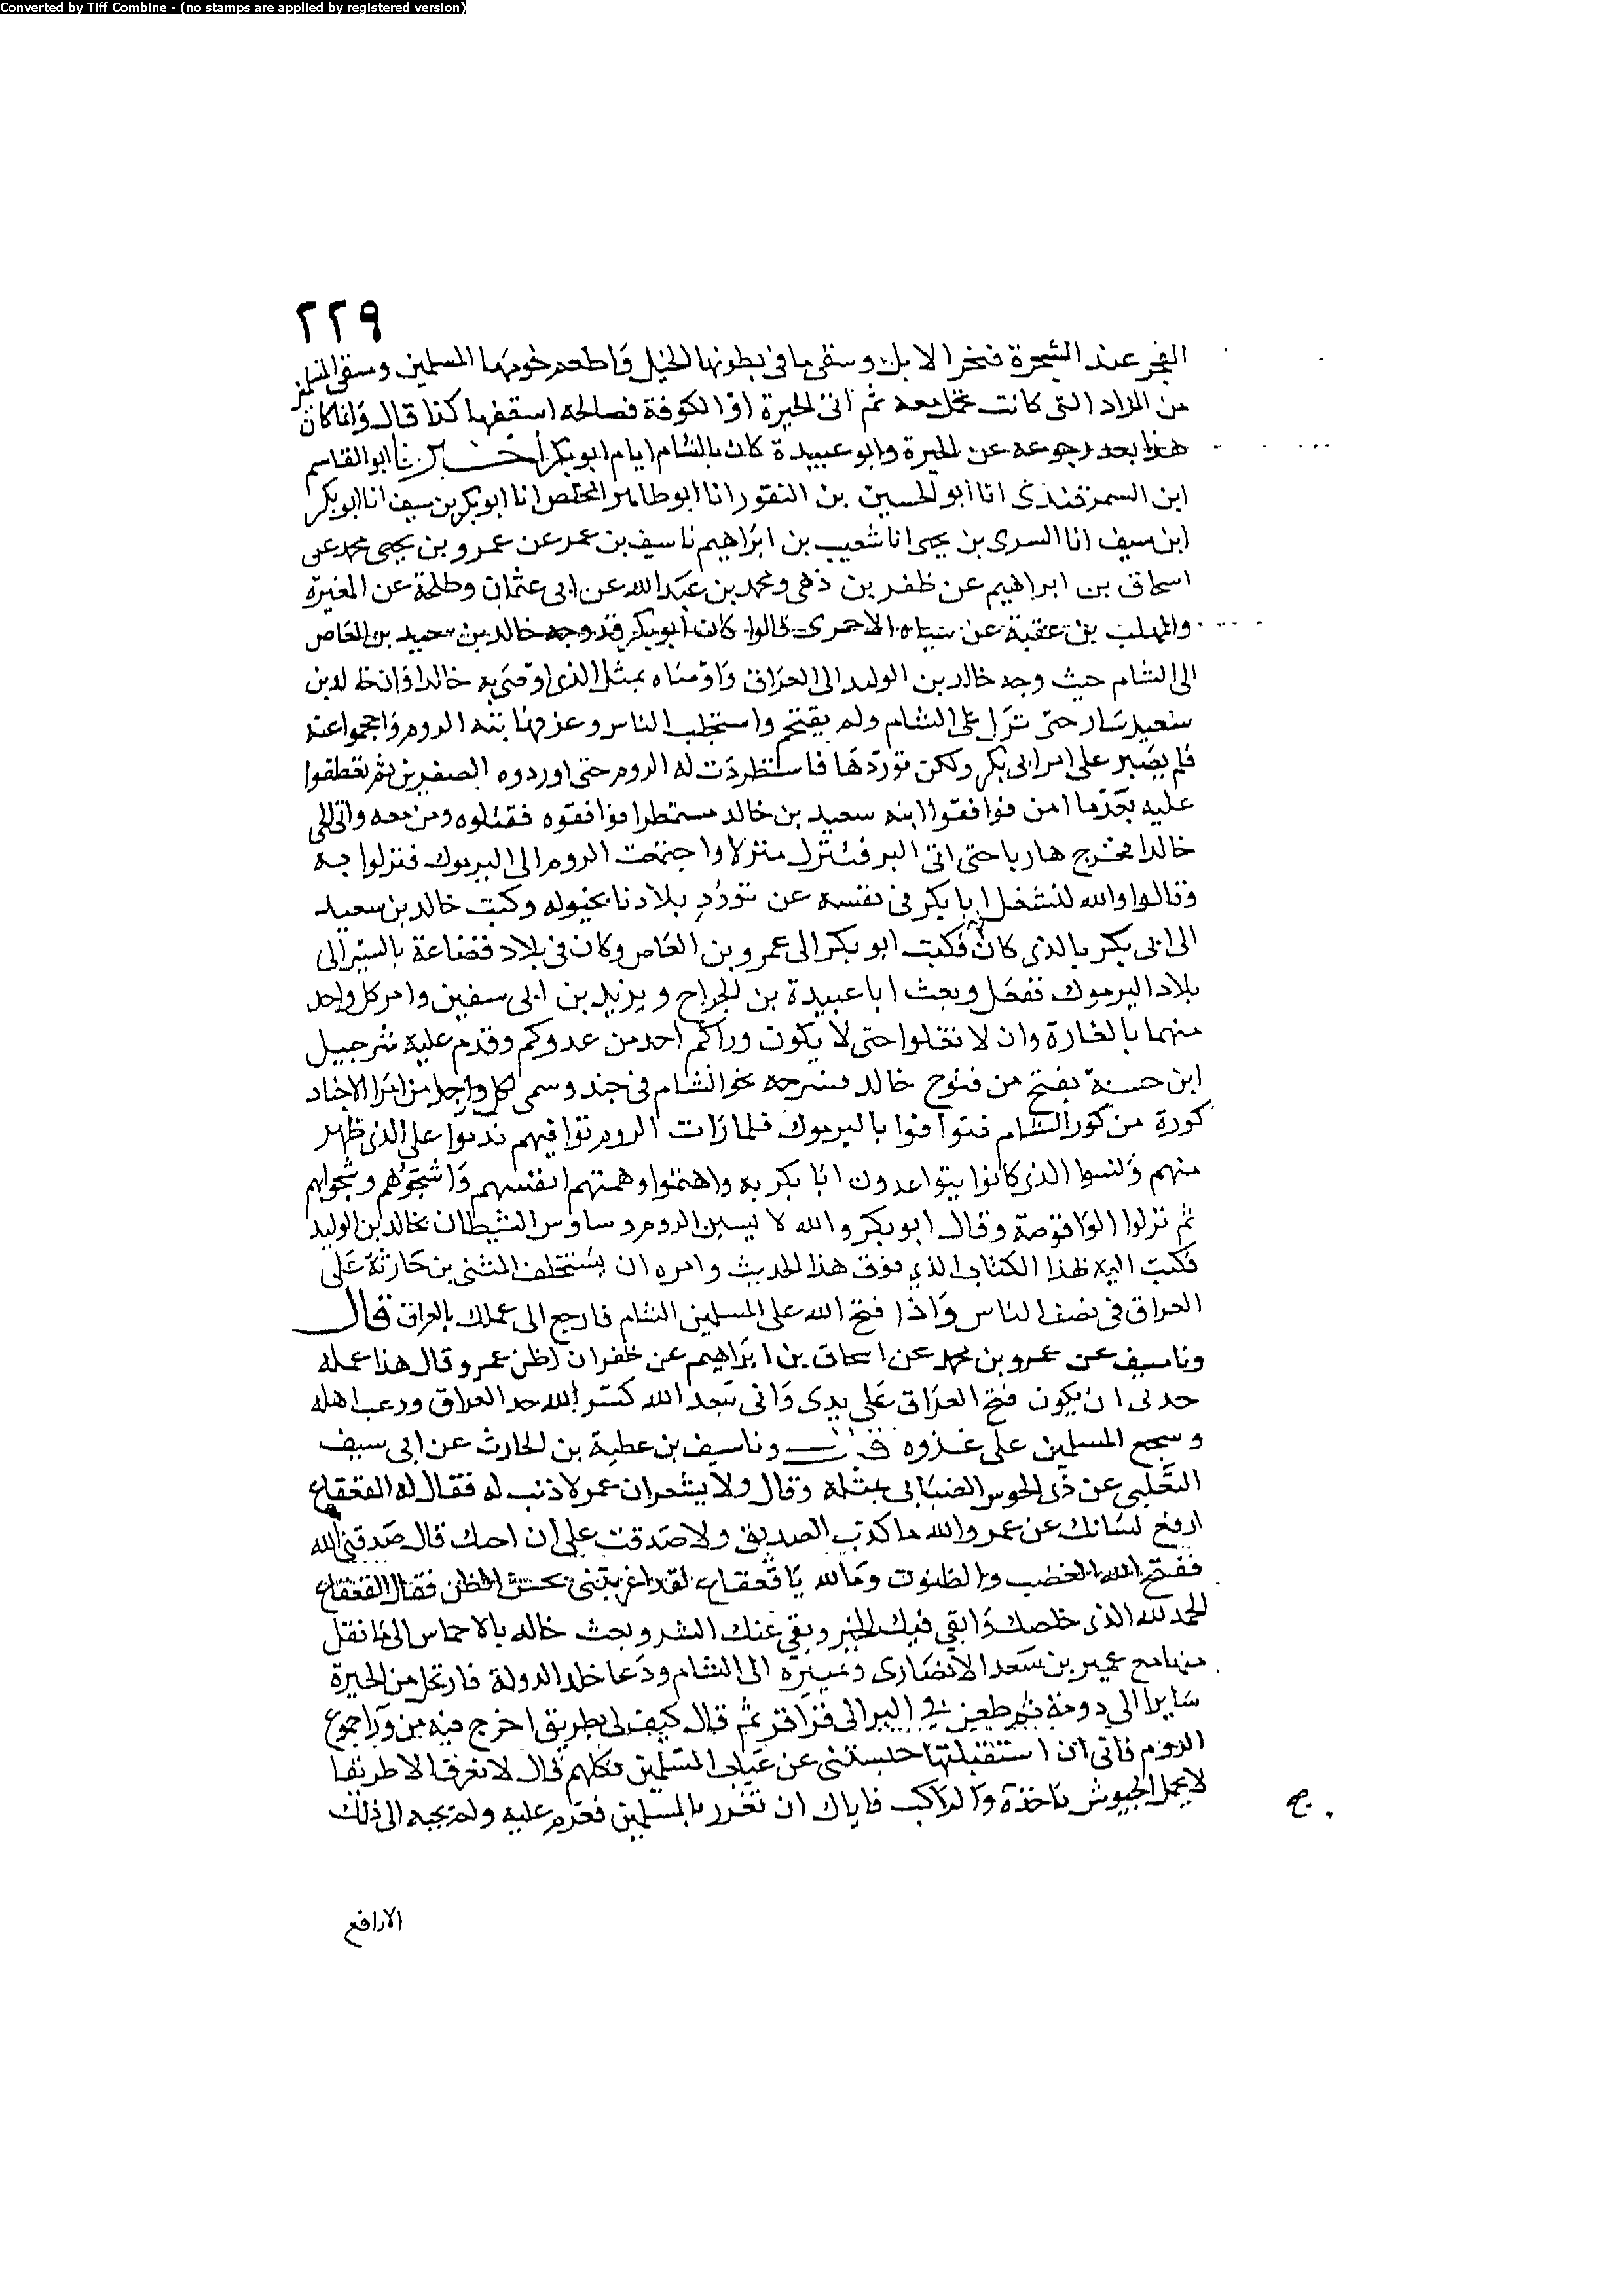 Converted by Tiff Combine - (no stamps are applied by registered version)
٢٢٩
الفجر عند الشجرة فنحر الابل وسقى ما فى بطونها الخيل واطعم لحومها المسلمين وسقى المسلمين
من المزاد التى كانت تحمل معه ثم اتى الحيرة او الكوفة فصالحه اسقفها كذا قال وانما كان
هذا بعد رجوعه عن الحيرة وابو عبيدة كان بالشام ايام ابو بكر اخبرنا ابو القاسم
ابن السمرقندى انا ابو الحسين بن النقور انا ابو طاهر المخلص انا ابو بكر بن سيف انا ابو بكر
ابن سيف انا السرى بن يحيى انا شعيب بن ابراهيم نا سيف بن عمر عن عمرو بن يحيى محمد عن
اسحاق بن ابراهيم عن ظفر بن ذهى ومحمد بن عبد الله عن ابى عثمان وطلحة عن المغيرة
والمهلب بن عقبة عن سياه الاحمرى قالوا كان ابو بكر قد وجه خالد بن سعيد بن العاص
الى الشام حيث وجه خالد بن الوليد الى العراق واوصاه بمثل الذى اوصى به خالدا وان خالد بن
سعيد سار حتى نزل على الشام ولم يقتحم واستجلب الناس وعز فهابته الروم واحجموا عنه
فلم يصبر على امر ابى بكر ولكن توردها فاستطردت له الروم حتى اوردوه الصفرين ثم تعطفوا
عليه بعد ما امن فوافقوا ابنه سعيد بن خالد مستمطرا فوافقوه فقتلوه ومن معه واتى
خالدا فخرج هاربا حتى اتى البر فينزل منزلا واجتمعت الروم الى اليرموك فنزلوا به
وقالوا والله لنشغل ابا بكر فى نفسه عن تورد بلادنا بخيوله وكتب خالد بن سعيد
الى ابى بكر بالذى كان فكتب ابو بكر الى عمرو بن العاص وكان فى بلاد قضاعة بالسير الى
بلاد اليرموك ففعل وبعث ابا عبيدة بن الجراح ويزيد بن ابى سفين وامر كل واحد
منهما بالغارة وان لا تغلوا حتى لا يكون وراكم احد من عدوكم وقدم عليه شرحبيل
ابن حسنة بفتح من فتوح خالد فسرحه نحو الشام فى جند وسمى لكل واحد من امرا الاجناد
كورة من كور الشام فتوافوا باليرموك فلما رات الروم توافيهم ندموا على الذى ظهر
منهم ونسوا الذى كانوا يتواعدون ابا بكر به واهتموا وهمتهم انفسهم واشجوهم وشجوا بهم
ثم نزلوا الواقوصة وقال ابو بكر والله لا نسين الروم وساوس الشيطان بخالد بن الوليد
فكتب اليه بهذا الكتاب الذى فوق هذا الحديث وامره ان يستخلف المثنى بن حارثة على
العراق فى نصف الناس واذا فتح الله على المسلمين الشام فارجع الى عملك بالعراق قال
ونا سيف عن عمرو بن محمد عن اسحاق بن ابراهيم عن ظفر ان اظن عمرو قال هذا عمله
حدنى ان يكون فتح العراق على يدى وانى بعد الله كسر الله حد العراق ورعب اهله
وسجع المسلمين على غزوه قال ونا سيف بن عطية بن الحارث عن ابى سيف
التغلبى عن ذى الجوس الضبابى بمثله وقال ولا يشعر ان عمر لا ذنب له فقال له القعقاع
ارفع لسانك عن عمر والله ما كذب الصديق ولا صدقت على ان احك قال صدقتنى الله
فقبح الله الغضب والظنون والله يا قعقاع لقد اغريتنى بحسن الظن فقال القعقاع
الحمد لله الذى خلصك وابقى فيك الخير وبقى عنك الشر وبعث خالد بالاخماس الى ما نقل
منها مع عمير بن سعد الانصارى ومسيره الى الشام ودعا خلد الدولة فارتحل من الحيرة
سايرا الى دومة ثم طعن فى البر الى قراقر ثم قال كيف لى بطريق اخرج فيه من ورا جموع
الروم فانى ان استقبلتها حبستنى عن غياث المسلمين فكلهم قال لا نعرف الا طريقا
لا يحمل الجيوش ياخذه والراكب فاياك ان تغرر بالمسلمين فعزم عليه ولم يجبه الى ذلك
الا رافع